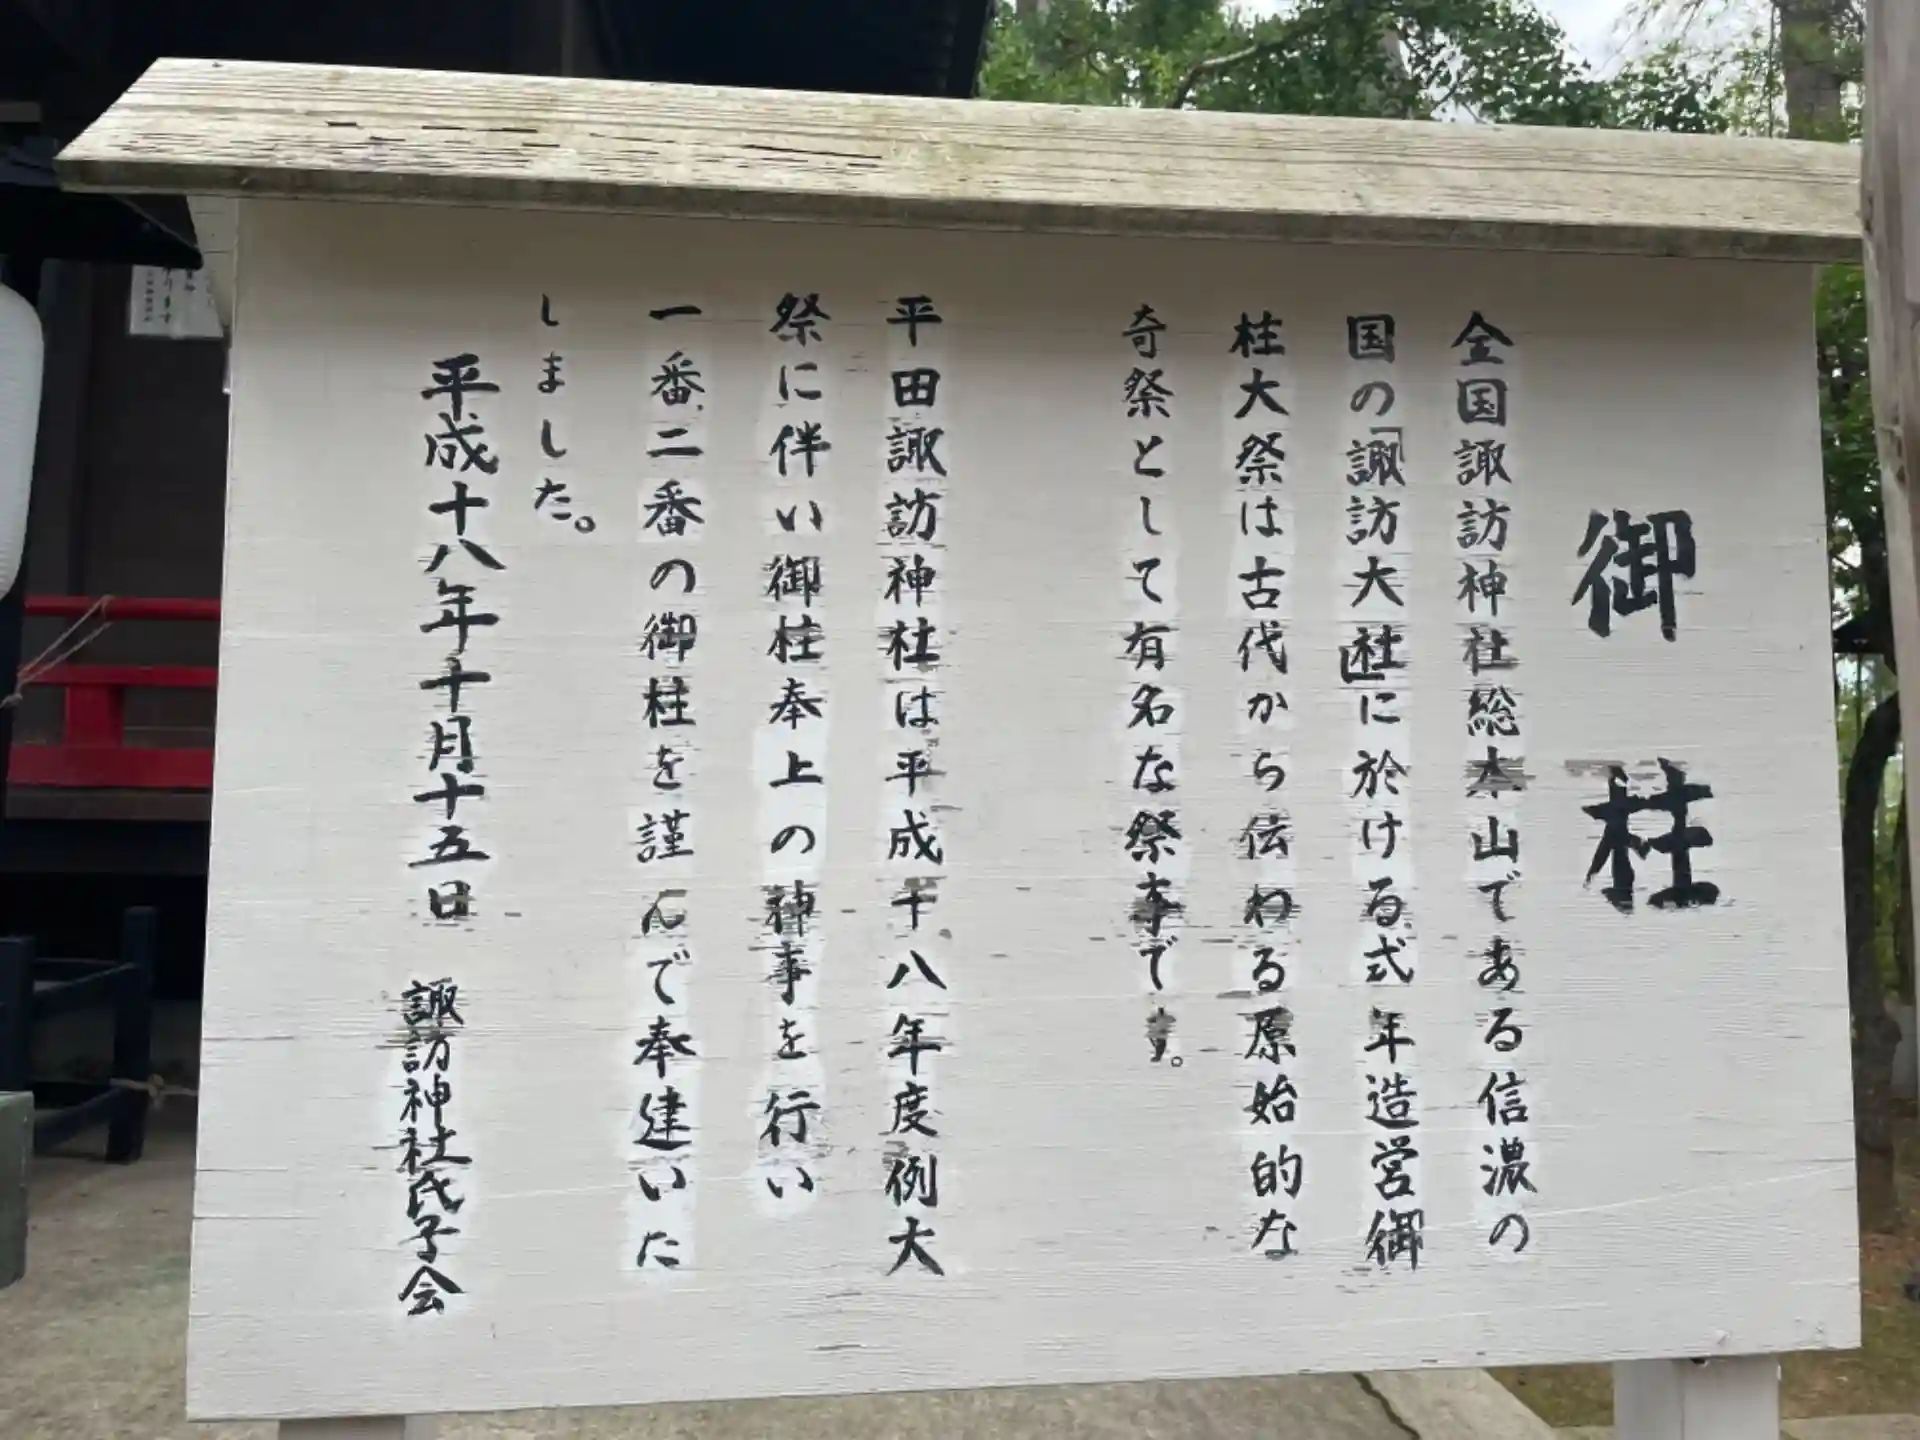 御柱
全国諏訪神社総本山である信濃の
国の「諏訪大社」に於ける式年造営御
柱大祭は古代から伝わる原始的な
奇祭として有名な祭事です。
平田諏訪神社は平成十八年度例大
祭に伴い御柱奉上の神事を行い
一番、二番の御柱を謹んで奉建いた
しました。
平成十八年十月十五日 諏訪神社氏子会